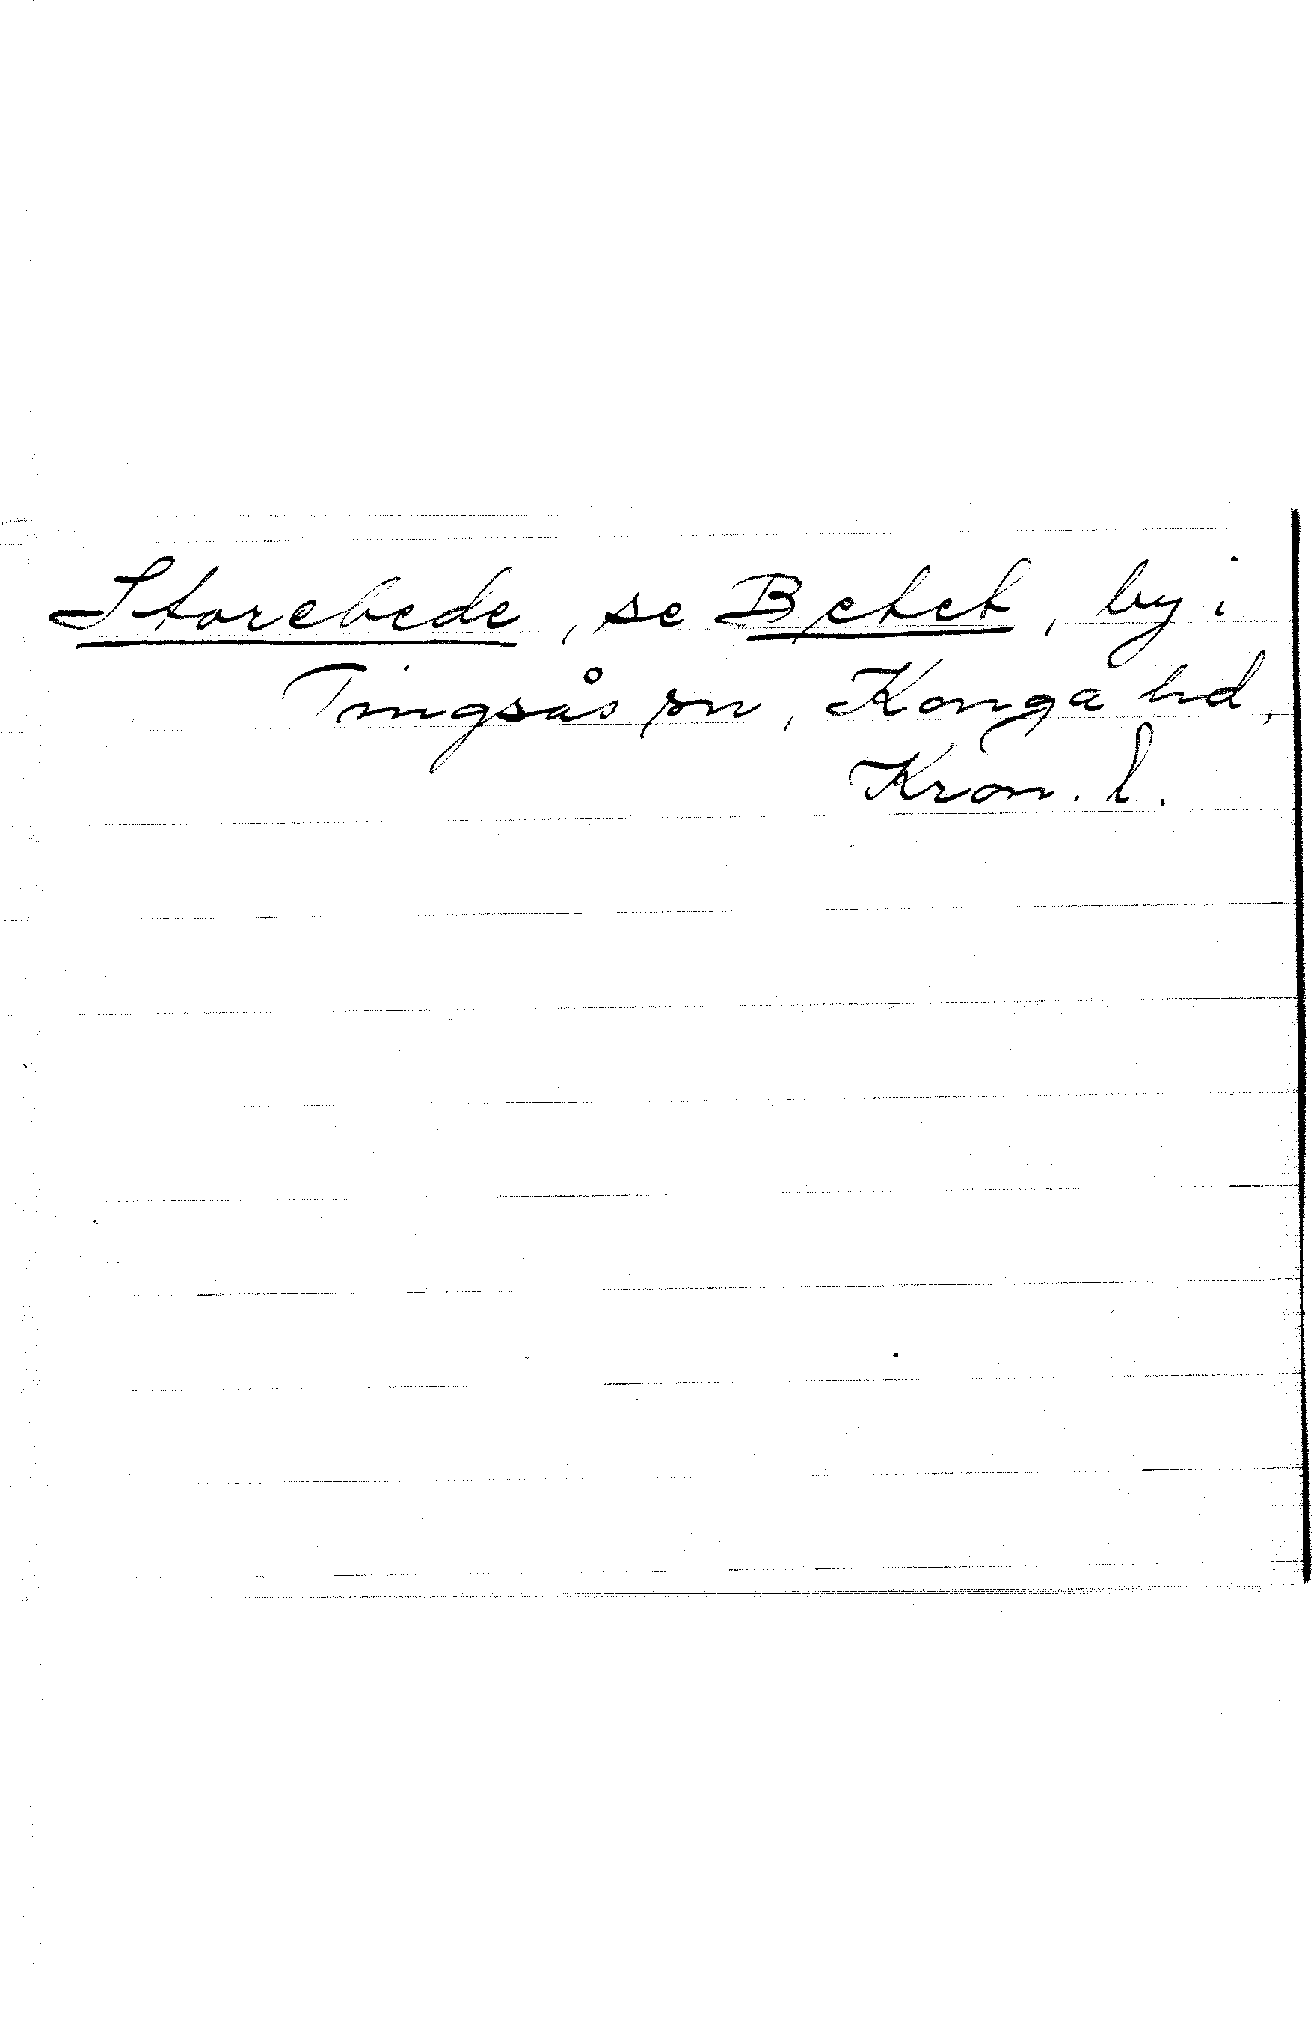 Storebede, se Betet, by i
Tingsås sn, Konga hd,
Kron. l.